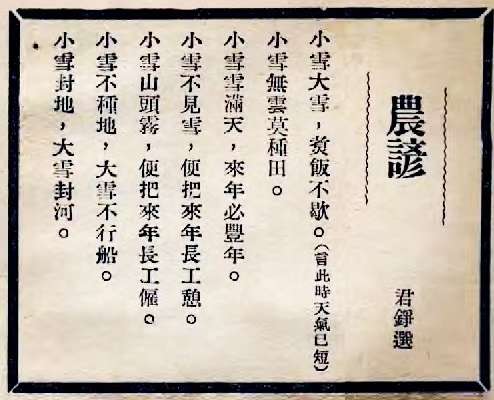 農諺
君錚選
小雪大雪，煑飯不歇。（言此時天氣已短）
小雪無雲莫種田。
小雪雪滿天，來年必豐年。
小雪不見雪，便把來年長工憩。
小雪山頭霧，便把來年長工僱。
小雪不種地，大雪不行船。
小雪封地，大雪封河。